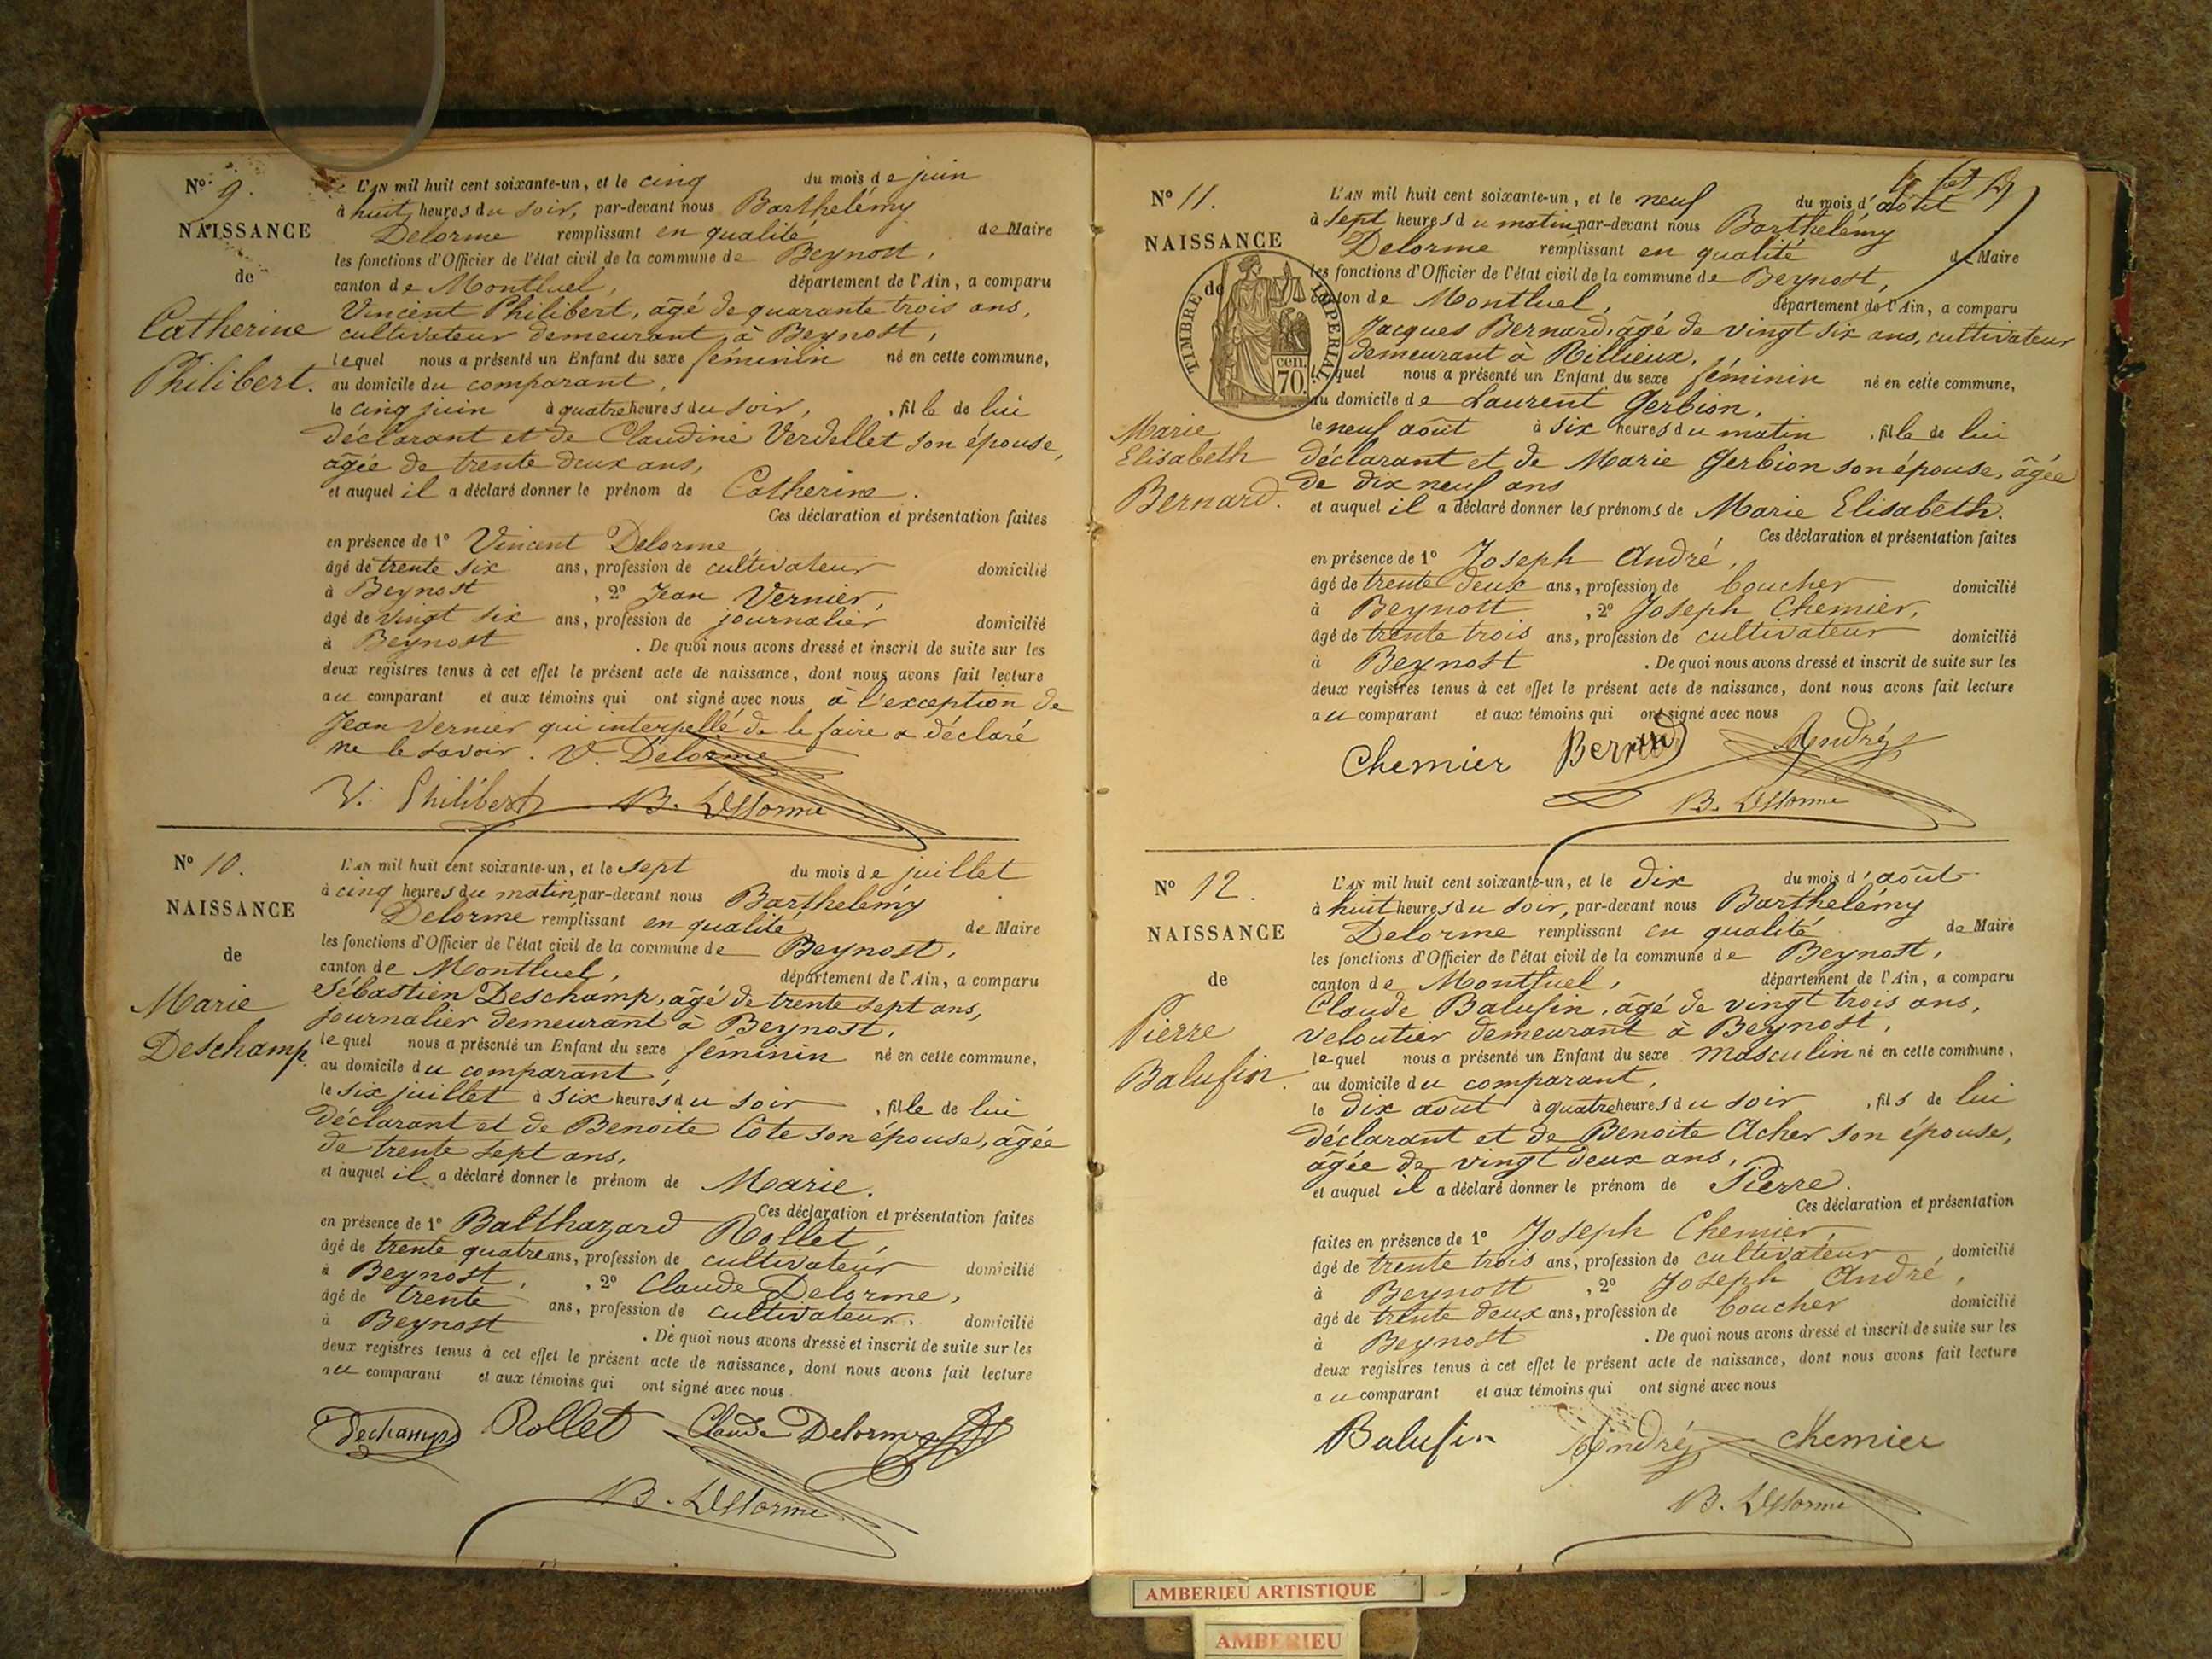 N° 9.
NAISSANCE
de
Catherine
Philibert.
L'AN mil huit cent soixante-un, et le cinq du mois de juin
à huit heures du soir, par-devant nous Barthelémy
Delorme remplissant en qualité de Maire
les fonctions d'Officier de l'état civil de la commune de Beynost,
canton de Montluel, département de l'Ain, a comparu
Vincent Philibert, âgé de quarante trois ans,
cultivateur demeurant à Beynost,
lequel nous a présenté un Enfant du sexe féminin né en cette commune,
au domicile du comparant,
le cinq juin à quatre heures du soir, , fille de lui
déclarant et de Claudine Verdellet son épouse,
âgée de trente deux ans,
et auquel il a déclaré donner le prénom de Catherine.
Ces déclaration et présentation faites
en présence de 1° Vincent Delorme,
âgé de trente six ans, profession de cultivateur domicilié
à Beynost , 2° Jean Vernier,
âgé de vingt six ans, profession de journalier domicilié
à Beynost . De quoi nous avons dressé et inscrit de suite sur les
deux registres tenus à cet effet le présent acte de naissance, dont nous avons fait lecture
au comparant et aux témoins qui ont signé avec nous à l'exception de
Jean Vernier qui interpellé de le faire a déclaré
ne le savoir. V. Delorme
V. Philibert B. Delorme
N° 10.
NAISSANCE
de
Marie
Deschamp.
L'AN mil huit cent soixante-un, et le sept du mois de juillet
à cinq heures du matin, par-devant nous Barthelémy
Delorme remplissant en qualité de Maire
les fonctions d'Officier de l'état civil de la commune de Beynost,
canton de Montluel, département de l'Ain, a comparu
Sébastien Deschamp, âgé de trente sept ans,
journalier demeurant à Beynost,
lequel nous a présenté un Enfant du sexe féminin né en cette commune,
au domicile du comparant,
le six juillet à six heures du soir , fille de lui
déclarant et de Benoite Cote son épouse, âgée
de trente sept ans,
et auquel il a déclaré donner le prénom de Marie.
Ces déclaration et présentation faites
en présence de 1° Balthazard Rollet,
âgé de trente quatre ans, profession de cultivateur domicilié
à Beynost, , 2° Claude Delorme,
âgé de trente ans, profession de cultivateur. domicilié
à Beynost . De quoi nous avons dressé et inscrit de suite sur les
deux registres tenus à cet effet le présent acte de naissance, dont nous avons fait lecture
au comparant et aux témoins qui ont signé avec nous.
Dechamp Rollet Claude Delorme
B. Delorme
N° 11.
NAISSANCE
de
TIMBRE IMPERIAL
cen.
70.
Marie
Elisabeth
Bernard.
L'AN mil huit cent soixante-un, et le neuf du mois d'août
à sept heures du matin, par-devant nous Barthelémy
Delorme remplissant en qualité de Maire
les fonctions d'Officier de l'état civil de la commune de Beynost,
canton de Montluel, département de l'Ain, a comparu
Jacques Bernard, âgé de vingt six ans, cultivateur
demeurant à Rillieux,
lequel nous a présenté un Enfant du sexe féminin né en cette commune,
au domicile de Laurent Gerbion,
le neuf août à six heures du matin , fille de lui
déclarant et de Marie Gerbion son épouse, âgée
de dix neuf ans
et auquel il a déclaré donner les prénoms de Marie Elisabeth.
Ces déclaration et présentation faites
en présence de 1° Joseph André,
âgé de trente deux ans, profession de boucher domicilié
à Beynost , 2° Joseph Chemier,
âgé de trente trois ans, profession de cultivateur domicilié
à Beynost . De quoi nous avons dressé et inscrit de suite sur les
deux registres tenus à cet effet le présent acte de naissance, dont nous avons fait lecture
au comparant et aux témoins qui ont signé avec nous
Chemier Bernard André
B. Delorme
N° 12.
NAISSANCE
de
Pierre
Balufin.
L'AN mil huit cent soixante-un, et le dix du mois d'août
à huit heures du soir, par-devant nous Barthelémy
Delorme remplissant en qualité de Maire
les fonctions d'Officier de l'état civil de la commune de Beynost,
canton de Montluel, département de l'Ain, a comparu
Claude Balufin, âgé de vingt trois ans,
veloutier demeurant à Beynost,
lequel nous a présenté un Enfant du sexe masculin né en cette commune,
au domicile du comparant,
le dix août à quatre heures du soir , fils de lui
déclarant et de Benoite Acher son épouse,
âgée de vingt deux ans,
et auquel il a déclaré donner le prénom de Pierre.
Ces déclaration et présentation
faites en présence de 1° Joseph Chemier,
âgé de trente trois ans, profession de cultivateur , domicilié
à Beynost , 2° Joseph André,
âgé de trente deux ans, profession de boucher domicilié
à Beynost . De quoi nous avons dressé et inscrit de suite sur les
deux registres tenus à cet effet le présent acte de naissance, dont nous avons fait lecture
au comparant et aux témoins qui ont signé avec nous
Balufin André Chemier
B. Delorme
AMBERIEU ARTISTIQUE
AMBERIEU